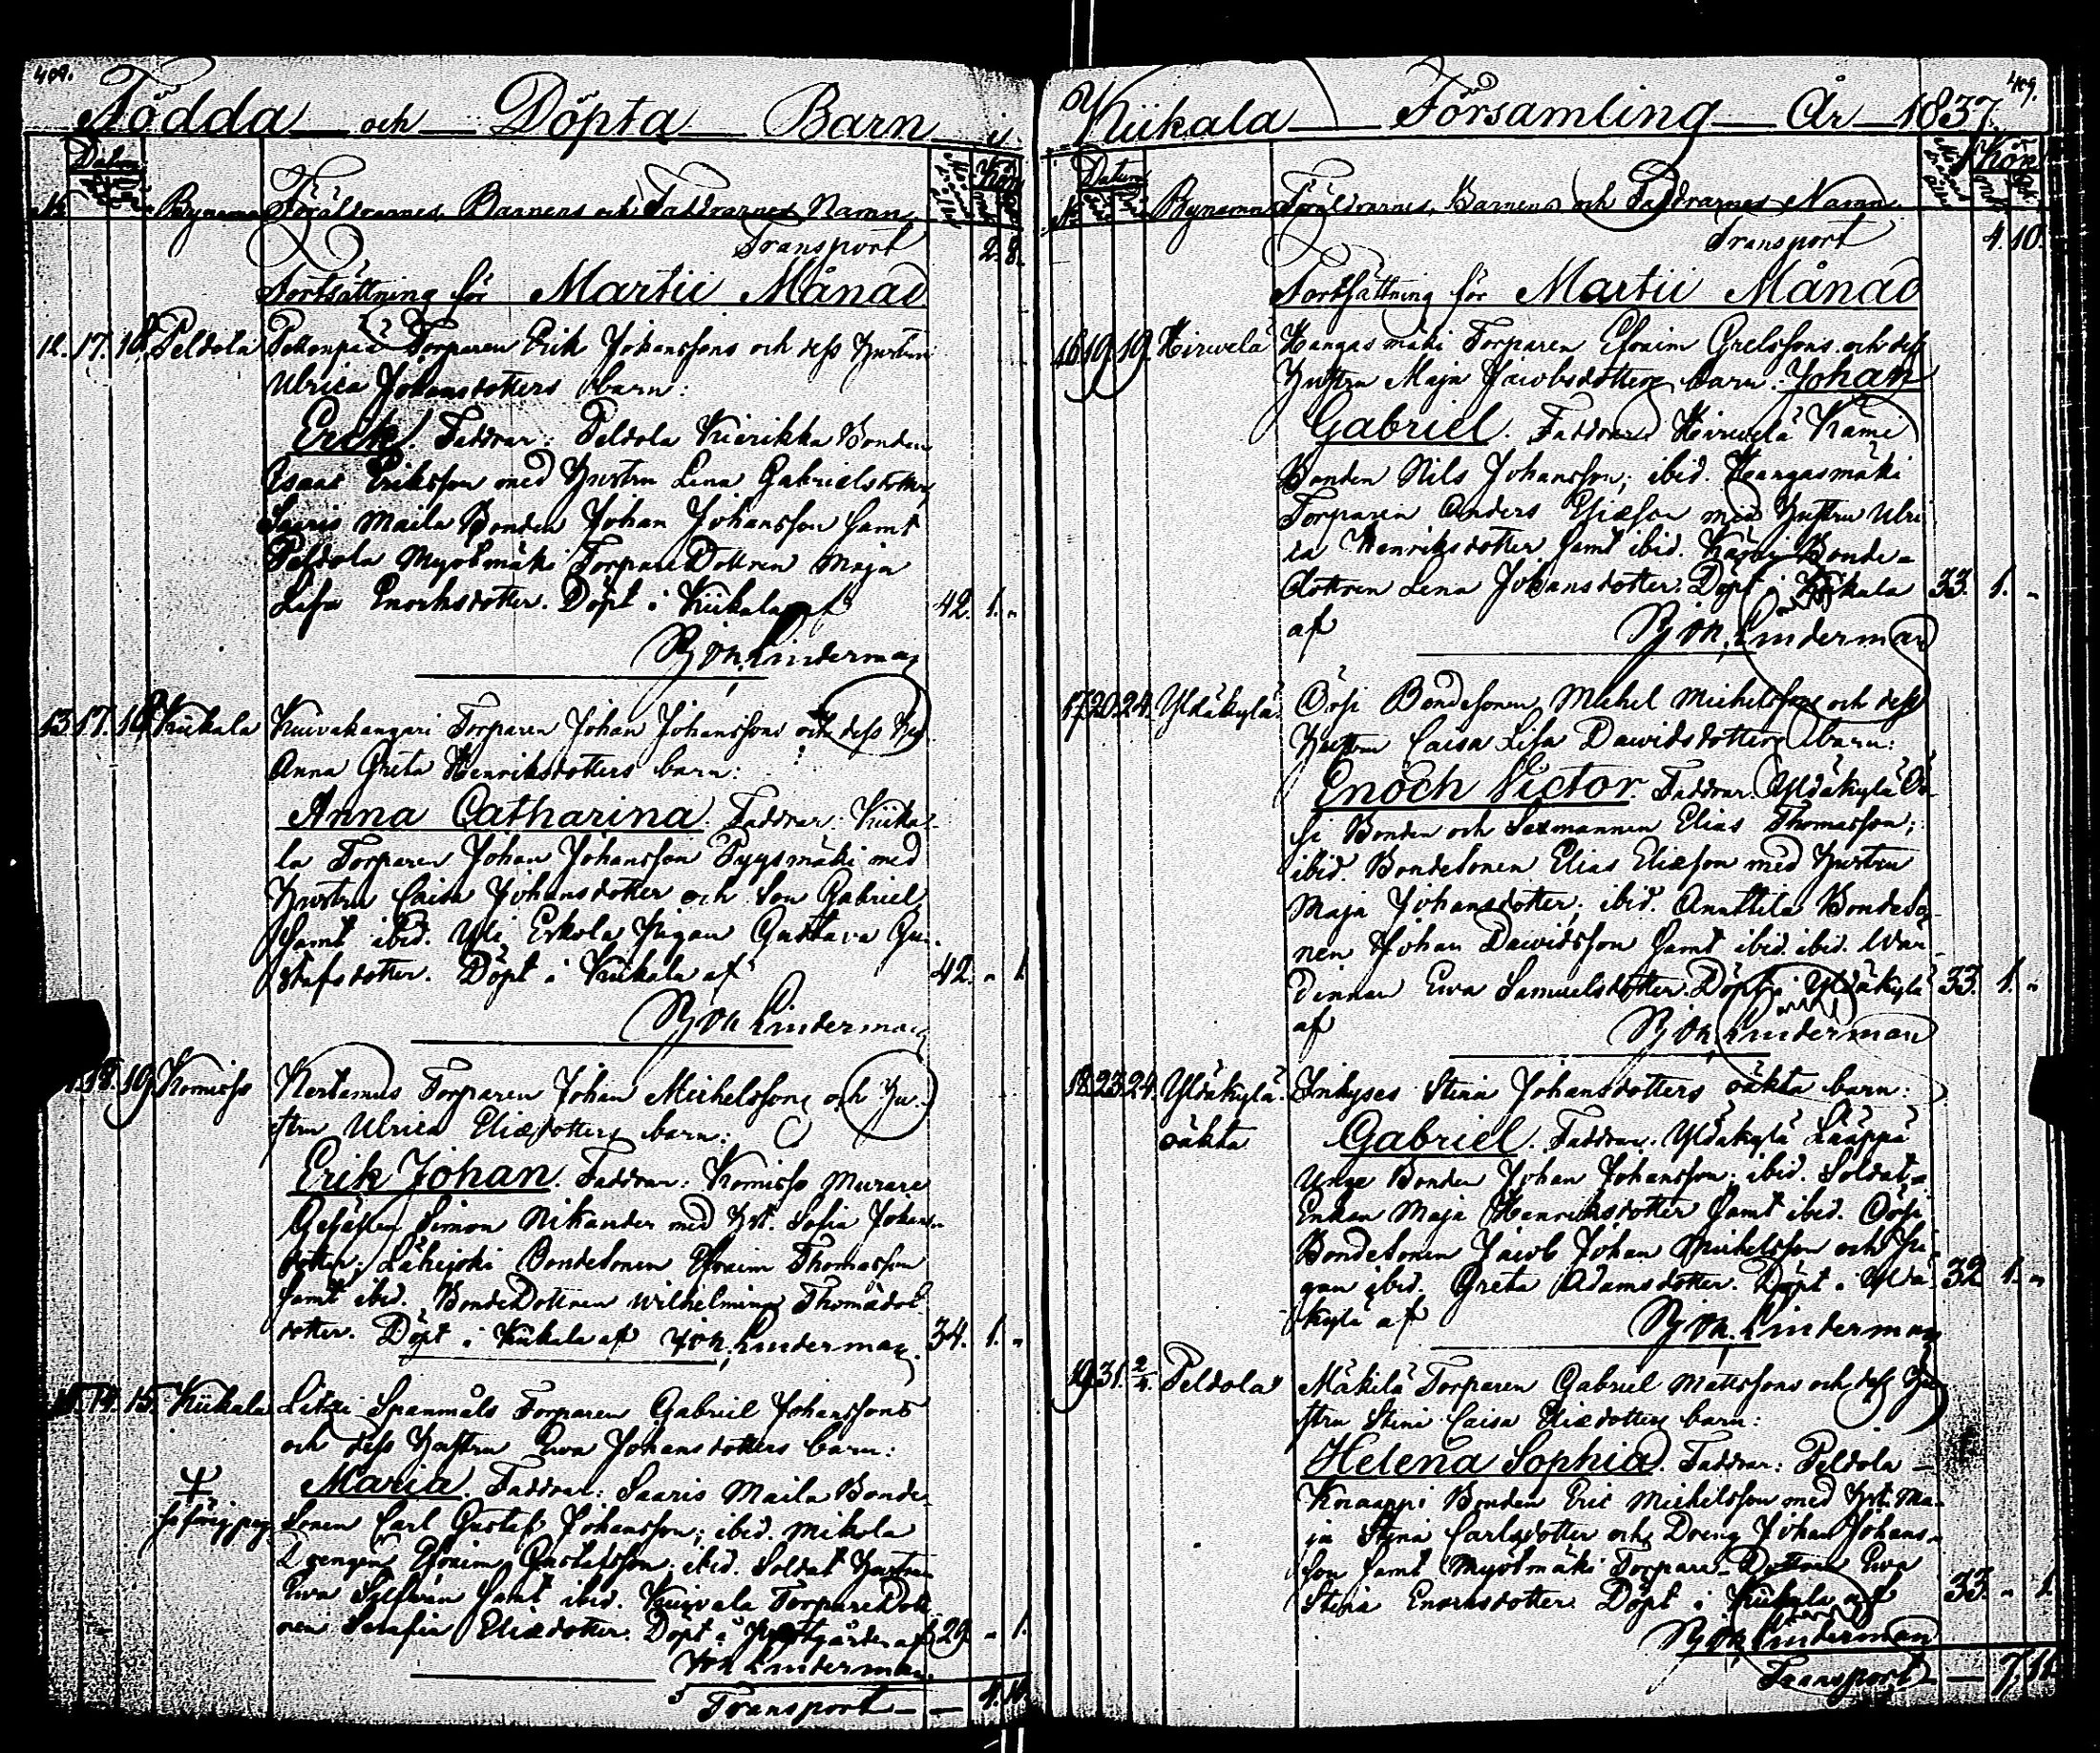 409.
Födda och Döpta Barn i
Datum
No
Bynamn
Föräldrarnes, Barnens och Faddrarnes Namn
Kön
Transport 2. 8.
Fortsättning för Martii Månad
12. 17. 18. Peldola Torparen Erik Johanssons och dess hustru
Ulrica Johansdotters barn:
Erik. Faddrar: Peldola Kierikka Bonden
Esaias Eriksson med hustru Lena Gabrielsdotter
Saaris Maila Bonden Johan Johansson samt
Peldola Myötmäki TorpareDottren Maja
Lisa Enochsdotter. Döpt i Kiikala af 42. 1. "
Joh. Linderman
13. 17. 18. Kiikala Kuivakangari Torparen Johan Johanssons och dess hu
Anna Greta Henriksdotters barn:
Anna Catharina. Faddrar: Kiika-
la Torparen Johan Johansson Pyysmäki med
hustru Caisa Johansdotter och Son Gabriel
samt ibid. Yli Erkola Pigan Gustava Gu-
stafsdotter. Döpt i Kiikala af 42. " 1.
Joh. Linderman
18. 19. Komisso Torparen Johan Michelssons och hu-
stru Ulrica Eliædotters barn:
Erik Johan. Faddrar: Komisso Murare
Gesällen Simon Nikander med hst. Sofia Johans-
dotter; Lähejoki Bondesonen Efraim Thomasson
samt ibid. BondeDottren Wilhelmina Thomædot
dotter. Döpt i Kiikala af Joh. Linderman 34. 1. "
15. 14. 15. Kiikala Spanmåls Torparen Gabriel Johanssons
och dess hustru Ewa Johansdotters barn:
Maria. Faddrar: Saaris Maila Bonde-
sonen Carl Gustaf Johansson; ibid. Mikola
Drengen Efraim Gustafsson; ibid. Soldat hustrun
Ewa samt ibid. TorpareDott
ren Serafia Eliædotter. Döpt i af 29. " 1.
Joh. Linderman
Transport 4. 10.
409.
Kiikala Församling År 1837.
Datum
No
Bynamn
Föräldrarnes, Barnens och Faddrarnes Namn
Kön
Transport 4. 10.
Fortsättning för Martii Månad
16. 19. 19. Hirwelä Kangasmäki Torparen Efraim Grelssons och dess
hustru Maja Jacobsdotters barn: Johan
Gabriel. Faddrar: Hirwelä Kämi
Bonden Nils Johansson; ibid. Kangasmäki
Torparen Anders Eliæson med hustru Ulri
ca Henriksdotter samt ibid. Kämi Bonde-
dottren Lena Johansdotter. Döpt i Kiikala 33. 1. "
af Joh. Linderman
17. 20. 24. Yldäkylä. Örsi Bondesonen Michel Michelssons och dess
hustru Caisa Lisa Dawidsdotters barn:
Enoch Victor. Faddrar: Yldäkylä Ör-
si Bonden och Sexmannen Elias Thomasson;
ibid. Bondesonen Elias Eliæson med hustru
Maja Johansdotter; ibid. Anattila Bondeso-
nen Johan Dawidsson samt ibid. ibid. Wär-
dinnan Ewa Samuelsdotter. Döpt i Yldäkylä 33. 1. "
af Joh. Linderman
18. 23. 24. Yldäkylä. Inhyses Stina Johansdotters oäkta barn:
oäkta Gabriel. Faddrar: Yldäkylä Lääppä
Unge Bonden Johan Johansson; ibid. Soldat-
Enkan Maja Henriksdotter samt ibid. Örsi
Bondesonen Jacob Johan Michelsson och Pi-
gan ibid. Greta Adamsdotter. Döpt i Yldä- 32. 1. "
kylä af
Joh. Linderman
19. 31. 2/4. Peldola Mäkilä Torparen Gabriel Matssons och dess hu
stru Stina Caisa Eliædotters barn:
Helena Sophia. Faddrar: Peldola
Knaappi Bonden Eric Michelsson med hst. Ma-
ja Stina Carlsdotter och Dreng Johan Johans-
son samt Myötmäki Torpare-Dottren Ewa
Stina Enochsdotter. Döpt i Kiikala af 33. " 1.
Joh. Linderman
Transport 7. 11.